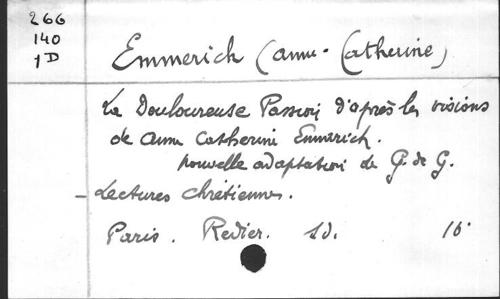 266
140
1D
Emmerich (Anne-Catherine)
La Douloureuse Passion d'après les visions
de Anne Catherine Emmerich.
nouvelle adaptation de G. de G.
- Lectures chrétiennes.
Paris. Redier. sd. 16°